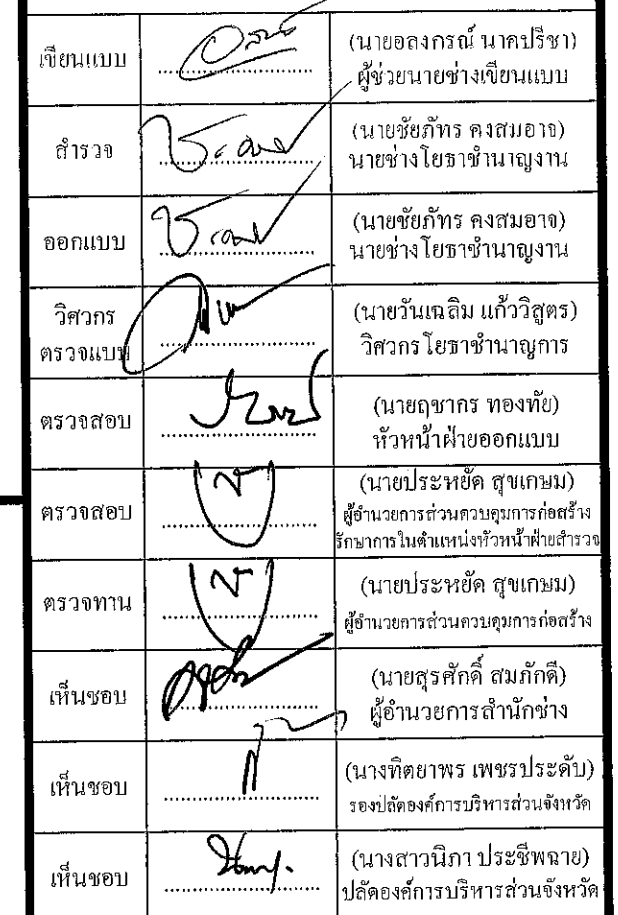 เขียนแบบ
(นายอลงกรณ์ นาคปรีชา)
ผู้ช่วยนายช่างเขียนแบบ
สำรวจ
(นายชัยภัทร คงสมอาจ)
นายช่างโยธาชำนาญงาน
ออกแบบ
(นายชัยภัทร คงสมอาจ)
นายช่างโยธาชำนาญงาน
วิศวกร
ตรวจแบบ
(นายวันเฉลิม แก้ววิสูตร)
วิศวกรโยธาชำนาญการ
ตรวจสอบ
(นายฤชากร ทองทัย)
หัวหน้าฝ่ายออกแบบ
ตรวจสอบ
(นายประหยัด สุขเกษม)
ผู้อำนวยการส่วนควบคุมการก่อสร้าง
รักษาการในตำแหน่งหัวหน้าฝ่ายสำรวจ
ตรวจทาน
(นายประหยัด สุขเกษม)
ผู้อำนวยการส่วนควบคุมการก่อสร้าง
เห็นชอบ
(นายสุรศักดิ์ สมภักดี)
ผู้อำนวยการสำนักช่าง
เห็นชอบ
(นางทิตยาพร เพชรประดับ)
รองปลัดองค์การบริหารส่วนจังหวัด
เห็นชอบ
(นางสาวนิภา ประชีพฉาย)
ปลัดองค์การบริหารส่วนจังหวัด